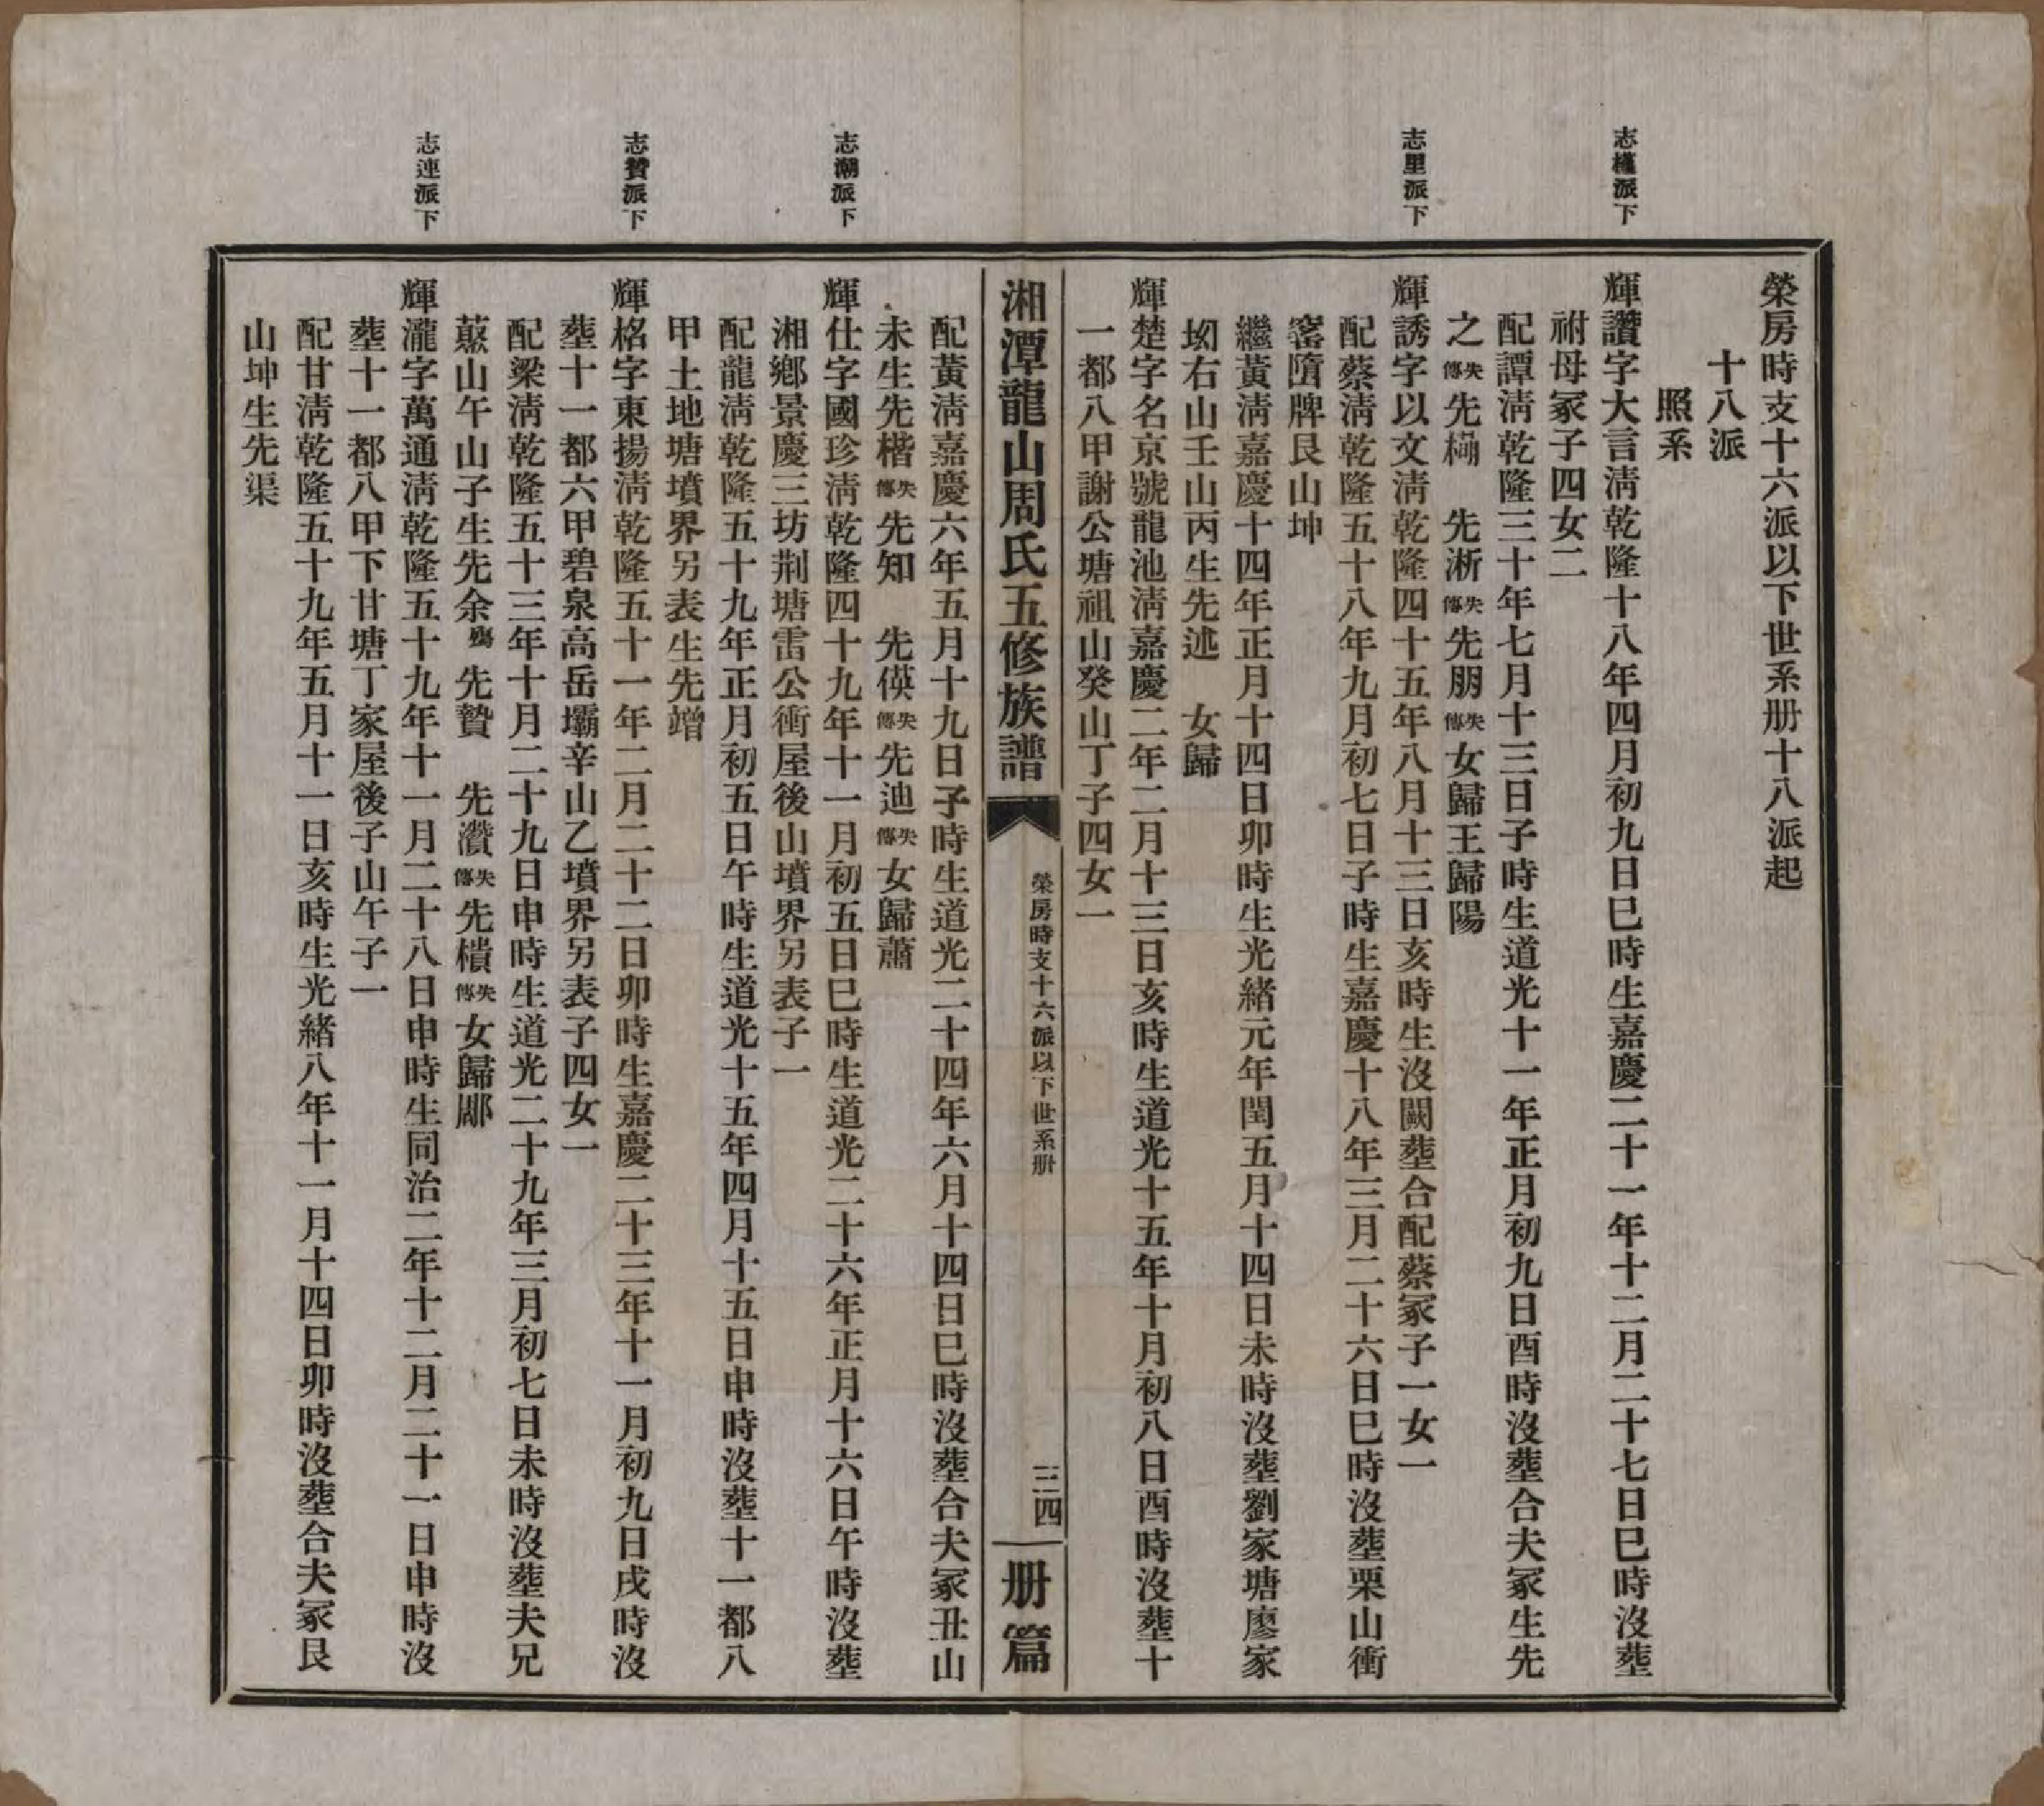 榮房時支十六派以下世系册十八派起
十八派
照系
志槿派下
輝讚字大言淸乾隆十八年四月初九日巳時生嘉慶二十一年十二月二十七日巳時沒葬
祔母冢子四女二
配譚淸乾隆三十年七月十三日子時生道光十一年正月初九日酉時沒葬合夫冢生先
之失傳先 先淅失傳先朋失傳女歸王歸陽
志里派下
輝誘字以文淸乾隆四十五年八月十三日亥時生沒闕葬合配蔡冢子一女一
配蔡淸乾隆五十八年九月初七日子時生嘉慶十八年三月二十六日巳時沒葬栗山衝
窰隋牌艮山坤
繼黃淸嘉慶十四年正月十四日卯時生光緒元年閏五月十四日未時沒葬劉家塘廖家
坳右山壬山丙生先述 女歸
輝楚字名京號龍池淸嘉慶二年二月十三日亥時生道光十五年十月初八日酉時沒葬十
一都八甲謝公塘祖山癸山丁子四女一
湘潭龍山周氏五修族譜
榮房時支十六派以下世系册
三四
册篇
配黃淸嘉慶六年五月十九日子時生道光二十四年六月十四日巳時沒葬合夫冢丑山
未生先楷失傳先知 先偀失傳先迪失傳女歸蕭
志潮派下
輝仕字國珍淸乾隆四十九年十一月初五日巳時生道光二十六年正月十六日午時沒葬
湘鄉景慶三坊荆塘雷公衝屋後山墳界另表子一
配龍淸乾隆五十九年正月初五日午時生道光十五年四月十五日申時沒葬十一都八
甲土地塘墳界另表生先竲
志贊派下
輝格字東揚淸乾隆五十一年二月二十二日卯時生嘉慶二十三年十一月初九日戌時沒
葬十一都六甲碧泉高岳壩辛山乙墳界另表子四女一
配梁淸乾隆五十三年十月二十九日申時生道光二十九年三月初七日未時沒葬夫兄
藙山午山子生先余殤先贄 先灒失傳先樻失傳女歸郮
志連派下
輝瀧字萬通淸乾隆五十九年十一月二十八日申時生同治二年十二月二十一日申時沒
葬十一都八甲下甘塘丁家屋後子山午子一
配甘淸乾隆五十九年五月十一日亥時生光緒八年十一月十四日卯時沒葬合夫冢艮
山坤生先渠